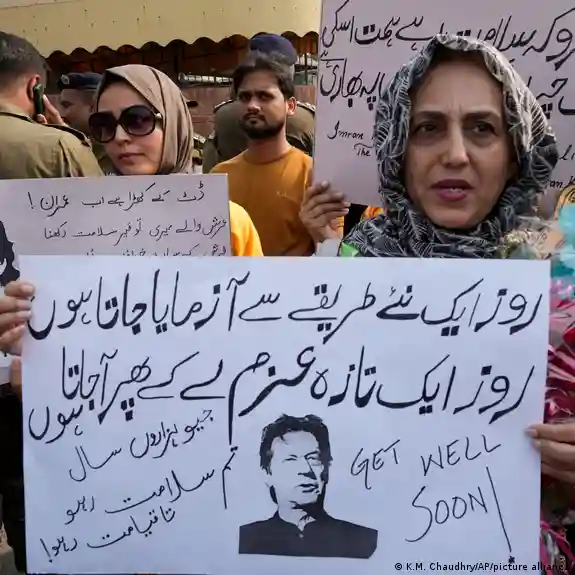 روکہ سلامت رہے ہمت اسکی
پہ بھاری ہے
Imran
The
ڈٹ کے کھڑا ہے اب عمران!
عرش والے میری توقیر سلامت رکھنا
روز ایک نئے طریقے سے آزمایا جاتا ہوں
روز ایک تازہ عزم لے کے پھر آجاتا ہوں
جیو ہزاروں سال
تم سلامت رہو
تاقیامت رہو!
GET WELL
SOON!
© K.M. Chaudhry/AP/picture alliance